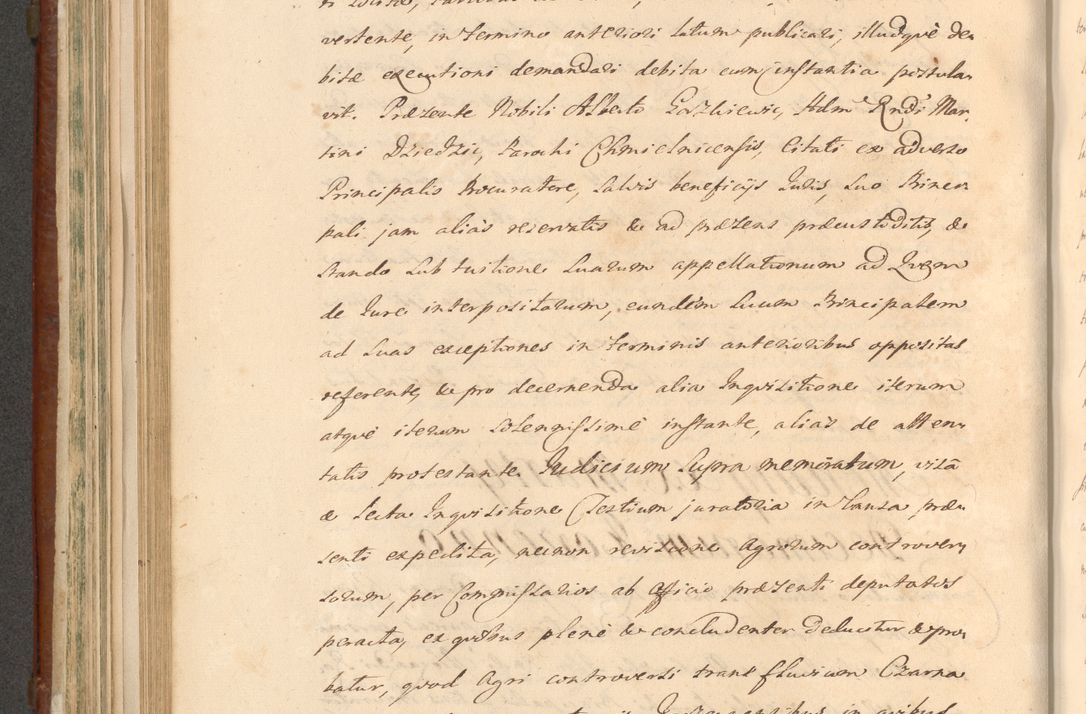 vertente, in termino anteriori latum publicari, illudque de-
bitæ executioni demandari debita cum instantia postula-
vit. Præsente Nobili Alberto Goszkiewic, Adm Rndi Mar-
tini Dziedzic, Parochi Chmielnicensis, Citati ex adverso
Principalis Procuratore, salvis beneficijs Iuris, suo Princi-
pali jam alias reservatis & ad præsens præcustoditis, &
stando sub tuitione suarum appellationum ad
de Iure interpositarum, eundem suum Principalem
ad suas exceptiones in terminis anterioribus oppositas
referente, & pro decernenda alia Inquisitione iterum
atque iterum solennissime instante, alias de atten-
tatis protestante. Iudicium supra memoratum, visa
& lecta Inquisitione Testium juratoria in causa præ-
senti expedita, necnon revisione agrorum controver-
sorum, per Commissarios ab officio præsenti deputatos
peracta, ex quibus plene & concludenter deducitur & pro-
batur, quod Agri controversi trans fluvium Czarna